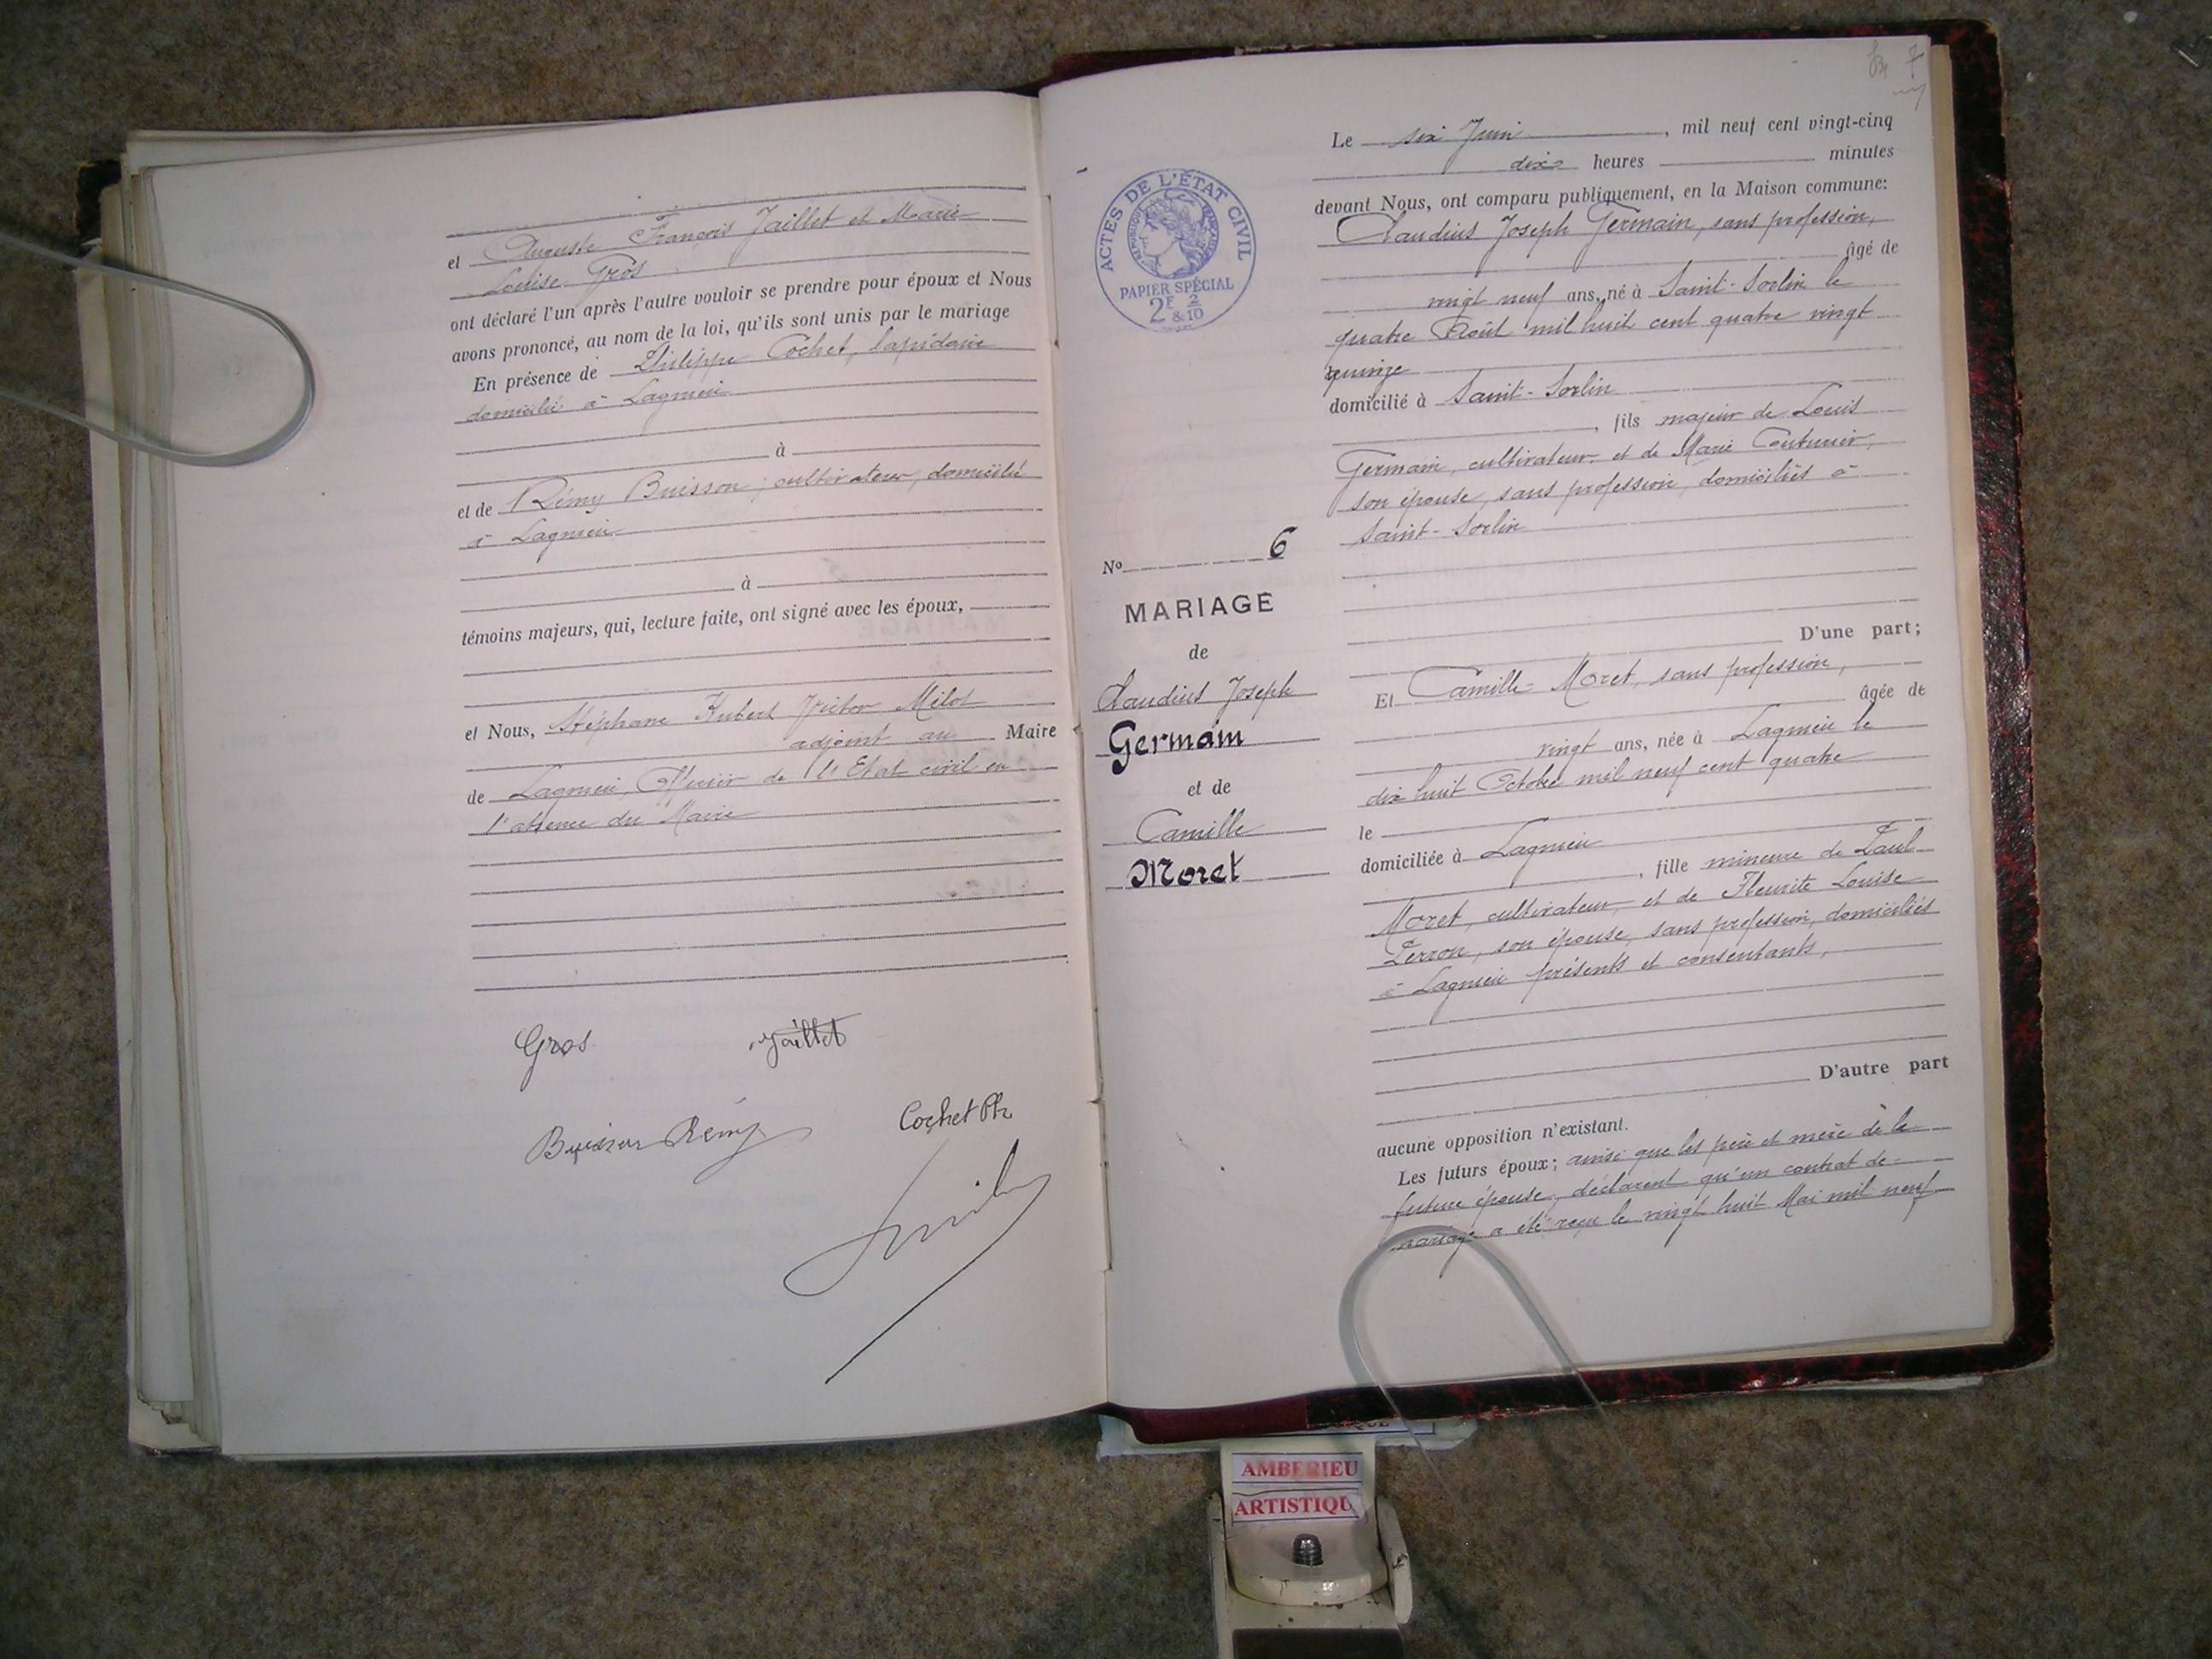 et Auguste François Jaillet et Marie
Louise Gros
ont déclaré l'un après l'autre vouloir se prendre pour époux et Nous
avons prononcé, au nom de la loi, qu'ils sont unis par le mariage
En présence de Philippe Cochet, lapidaire
domicilié à Lagnieu
à
et de Rémy Buisson, cultivateur, domicilié
à Lagnieu
à
témoins majeurs, qui, lecture faite, ont signé avec les époux,
et Nous, Stéphane Hubert Victor Milot
adjoint au Maire
de Lagnieu, Officier de l'Etat civil en
l'absence du Maire
Gros Jaillet
Buisson Rémy Cochet Ph
ACTES DE L'ÉTAT CIVIL
RÉPUBLIQUE FRANÇAISE
PAPIER SPÉCIAL
2F & 2/10
No 6
MARIAGE
de
Claudius Joseph
Germain
et de
Camille
Moret
7
Le six Juin, mil neuf cent vingt-cinq
dix heures minutes
devant Nous, ont comparu publiquement, en la Maison commune:
Claudius Joseph Germain, sans profession,
âgé de
vingt neuf ans, né à Saint-Sorlin le
quatre Août mil huit cent quatre vingt
quinze
domicilié à Saint-Sorlin
, fils majeur de Louis
Germain, cultivateur, et de Marie Couturier,
son épouse, sans profession, domiciliés à
Saint-Sorlin
D'une part;
Et Camille Moret, sans profession,
âgée de
vingt ans, née à Lagnieu le
dix huit Octobre mil neuf cent quatre
le
domiciliée à Lagnieu
, fille mineure de Paul
Moret, cultivateur, et de Fleurite Louise
Perron, son épouse, sans profession, domiciliés
à Lagnieu présents et consentants,
D'autre part
aucune opposition n'existant.
Les futurs époux; ainsi que les père et mère de la
future épouse, déclarent qu'un contrat de
mariage a été reçu le vingt huit Mai mil neuf
AMBERIEU
ARTISTIQU